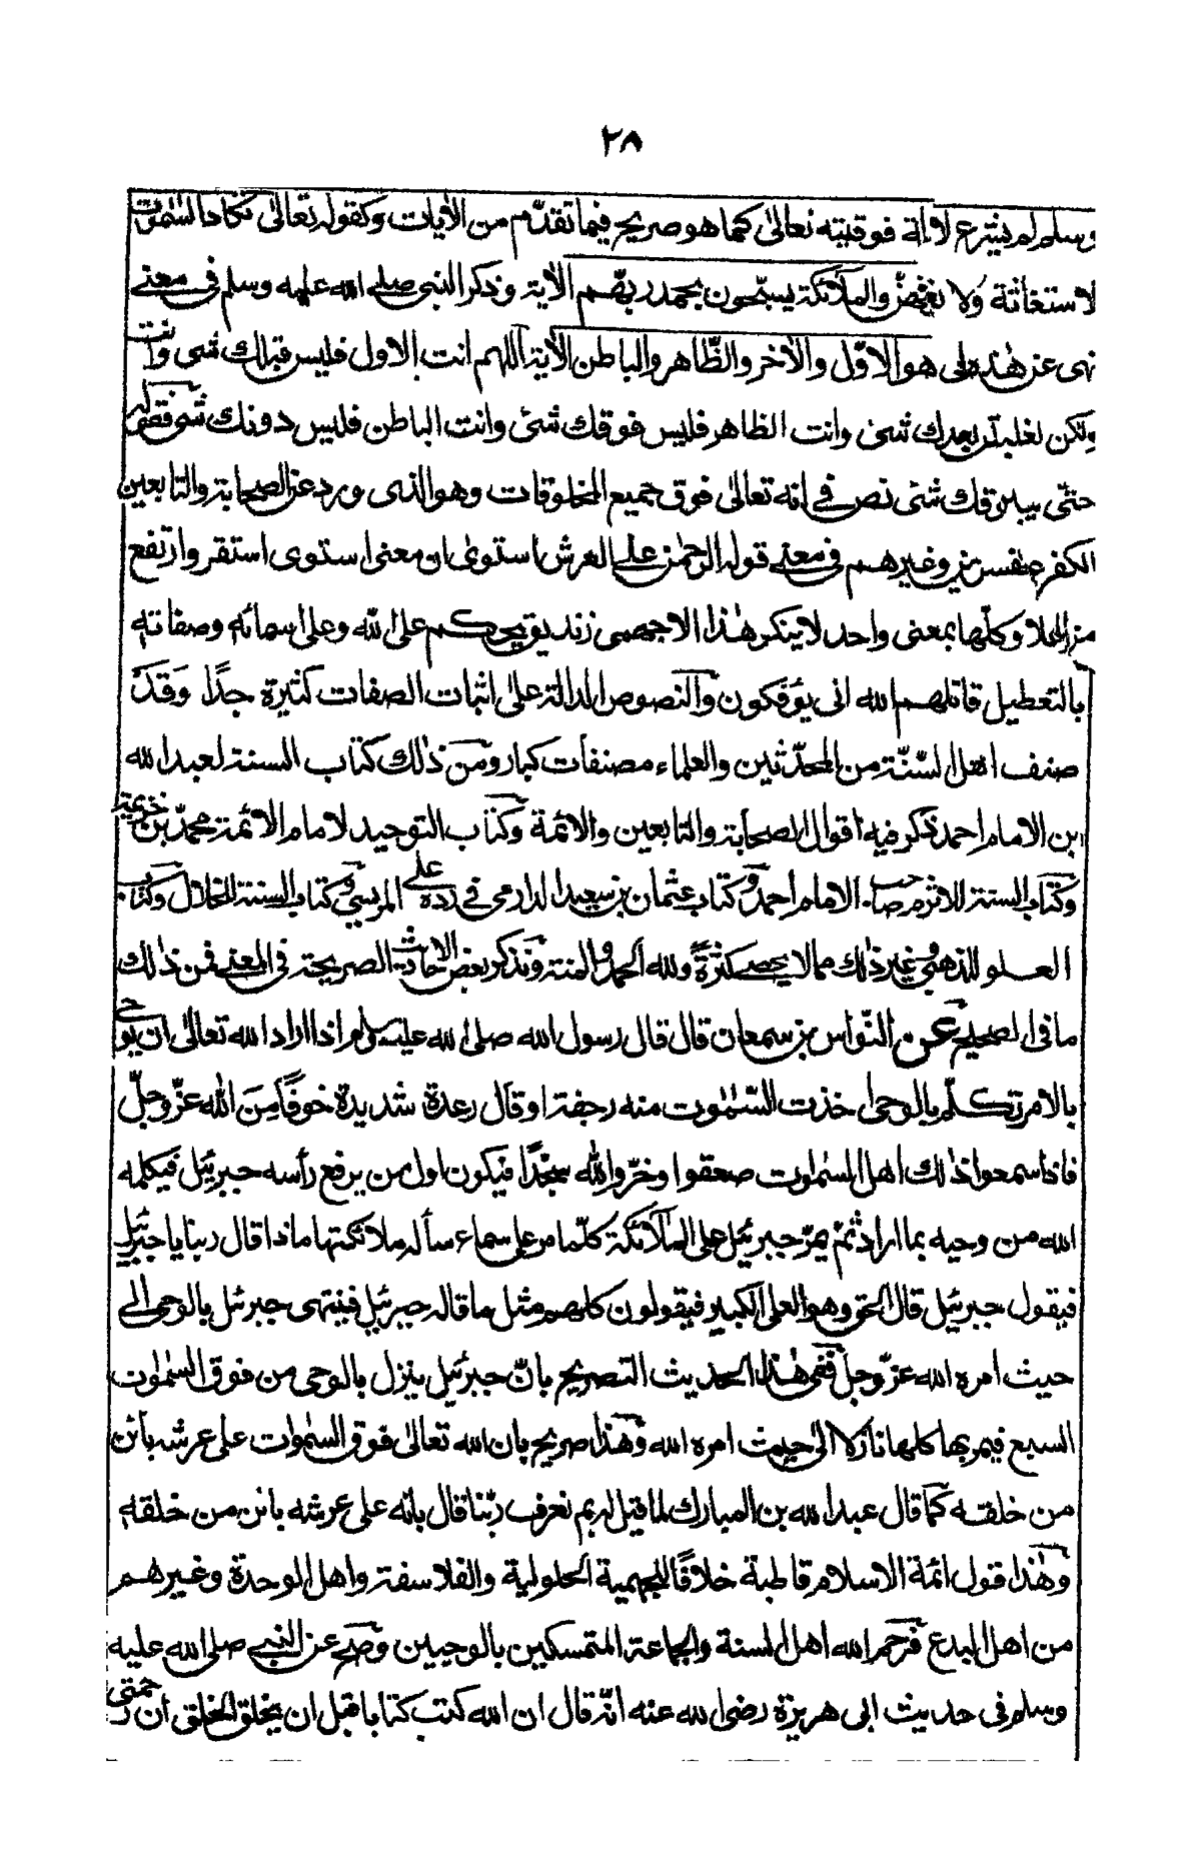 ٢٨
وسلم لم يشرع لا لة فوقيته تعالى كما هو صريح فيما تقدّم من الأيات وكقوله تعالى تكاد السّمٰوٰت
لاستغاثة ولا والملآئكة يسبّحون بحمد ربّهم الآية وذكر النبي صلى الله عليه وسلم في معنے
نهى عن هٰذه هو الاوّل والأخر والظّاهر والباطن الأية اللهم انت الاول فليس قبلك شئ وانت
ولكن بعدك شئ وانت الظاهر فليس فوقك شئ وانت الباطن فليس دونك شئ فقوله
حتّى فوقك شئ نص في انه تعالى فوق جميع المخلوقات وهو الذى ورد عن الصحابة والتابعين
الكفر وغيرهم في معنے قوله الرحمٰن على العرش استوىٰ ان معنى استوى استقر وارتفع
وعلا وكلّها بمعنى واحد لا ينكر هٰذا الا جهمى زنديق يحكم على الله وعلى اسمائه وصفاته
بالتعطيل قاتلهم الله انى يؤفكون والنصوص الدالة على اثبات الصفات كثيرة جدًا وقد
صنف اهل السّنّة من المحدّثين والعلماء مصنفات كبار ومن ذٰلك كتاب السنة لعبد الله
ابن الامام احمد ذكر فيه اقوال الصحابة والتابعين والائمة وكتاب التوحيد لامام الائمة محمّد بن خزيمة
وكتاب السنة للاثرم صاحب الامام احمد وكتاب عثمان بن سعيد الدارمي في رده على المريسي وكتاب السنة للخلال وكتاب
العلو للذهبي وغير ذٰلك مما لا يحصے كثرةً ولله الحمد والمنة ونذكر بعض الاحاديث الصريحة في المعنے فمن ذٰلك
ما في الصحيح عن النّواس بن سمعان قال قال رسول الله صلى الله عليه وسلم اذا اراد الله تعالى ان يوحى
بالامر تكلّم بالوحى اخذت السّمٰوٰت منه رجفة او قال رعدة شديدة خوفًا من الله عزّ وجلّ
فاذا سمعوا ذٰلك اهل السمٰوٰت صعقوا وخرّوا لله سجّدًا فيكون اول من يرفع رأسه جبرئيل فيكلمه
الله من وحيه بما اراد ثمّ يمرّ جبرئيل على الملآئكة كلّما مر على سماء سأله ملائكتها ماذا قال ربنا يا جبرئيل
فيقول جبرئيل قال الحق وهو العلى الكبير فيقولون كلهم مثل ما قاله جبرئيل فينتهى جبرئيل بالوحى الى
حيث امره الله عزّ وجلّ ففى هٰذا الحديث التصريح بانّ جبرئيل ينزل بالوحى من فوق السمٰوٰت
السبع فيمر بها كلها نازلا الى حيث امره الله وهٰذا صريح بان الله تعالى فوق السمٰوات على عرشه بائن
من خلقه كما قال عبد الله بن المبارك لما قيل له بم نعرف ربّنا قال بانّه على عرشه بائن من خلقه
وهٰذا قول ائمة الاسلام قاطبة خلافًا للجهمية الحلولية والفلاسفة واهل الوحدة وغيرهم
من اهل البدع فرحم الله اهل السنة والجماعة المتمسكين بالوحيين وصح عن النبي صلى الله عليه
وسلم في حديث ابى هريرة رضى الله عنه انّه قال ان الله كتب كتابا قبل ان يخلق الخلق ان رحمتي